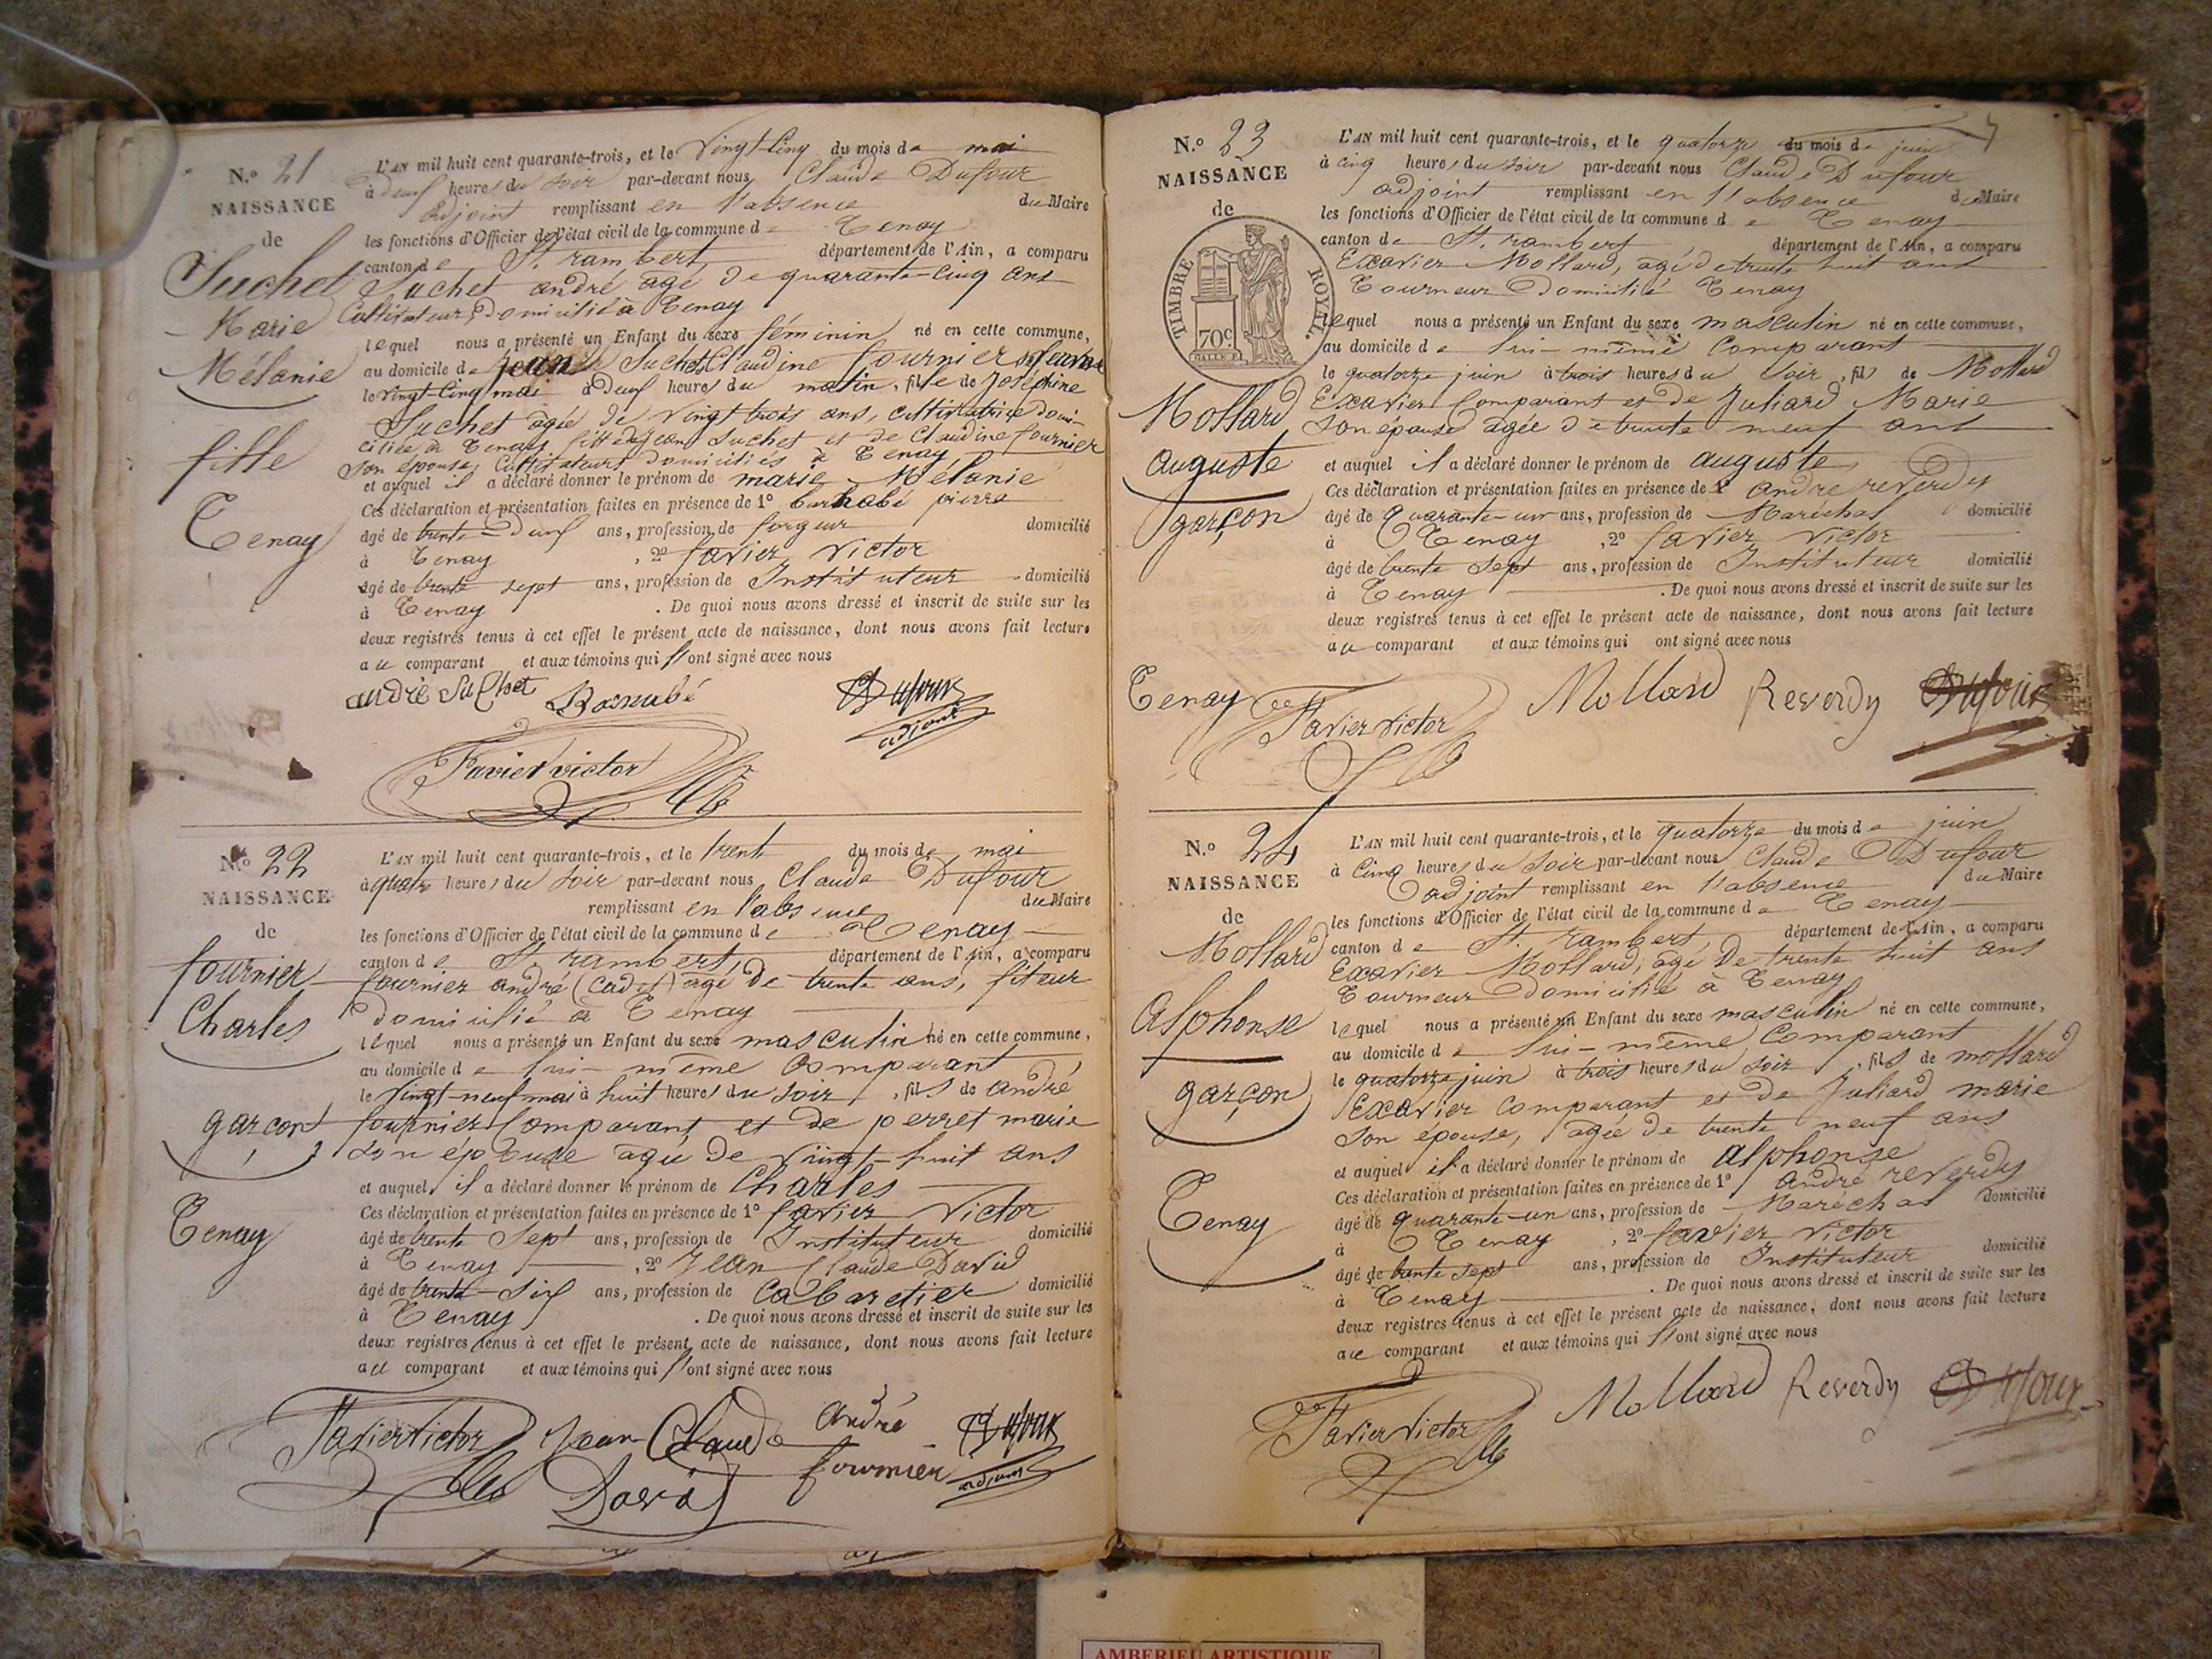 N.º 21
NAISSANCE
de
Suchet
Marie
Mélanie
fille
Tenay
L'AN mil huit cent quarante-trois, et le vingt-cinq du mois de mai
à deux heures du soir par-devant nous Claude Dufour
adjoint remplissant en l'absence du Maire
les fonctions d'Officier de l'état civil de la commune de Tenay
canton de St. rambert département de l'Ain, a comparu
Suchet andré agé de quarante-cinq ans
Cultivateur, domicilié à Tenay
lequel nous a présenté un Enfant du sexe féminin né en cette commune,
au domicile de jean Suchet Claudine fournier
le vingt-cinq mai à deux heures du matin, fille de Joséphine
Suchet agée de vingt trois ans, cultivatrice domi-
ciliée à Tenay fille de jean Suchet et de Claudine fournier
son épouse, Cultivateurs domiciliés à Tenay
et auquel il a déclaré donner le prénom de marie Mélanie
Ces déclaration et présentation faites en présence de 1º barnabé pierre
âgé de trente-deux ans, profession de forgeur domicilié
à Tenay , 2º favier victor
âgé de trente sept ans, profession de Instituteur domicilié
à Tenay . De quoi nous avons dressé et inscrit de suite sur les
deux registres tenus à cet effet le présent acte de naissance, dont nous avons fait lecture
au comparant et aux témoins qui l'ont signé avec nous
andré Suchet Barnabé Dufour
adjoint
Favier victor
N.º 22
NAISSANCE
de
fournier
Charles
garçon
Tenay
L'AN mil huit cent quarante-trois, et le trente du mois de mai
à quatre heures du soir par-devant nous Claude Dufour
remplissant en l'absence du Maire
les fonctions d'Officier de l'état civil de la commune de Tenay
canton de St. rambert, département de l'Ain, a comparu
fournier andré (cadet) agé de trente ans, fileur
domicilié à Tenay
lequel nous a présenté un Enfant du sexe masculin né en cette commune,
au domicile de lui-même Comparant
le vingt-neuf mai à huit heures du soir, fils de andré
fournier Comparant, et de perret marie
son épouse agée de vingt-huit ans
et auquel il a déclaré donner le prénom de Charles
Ces déclaration et présentation faites en présence de 1º favier Victor
âgé de trente Sept ans, profession de Instituteur domicilié
à Tenay , 2º Jean Claude David
âgé de trente-six ans, profession de Cabaretier domicilié
à Tenay . De quoi nous avons dressé et inscrit de suite sur les
deux registres tenus à cet effet le présent acte de naissance, dont nous avons fait lecture
au comparant et aux témoins qui l'ont signé avec nous
Favier Victor Jean Claude David andré fournier Dufour
adjoint
N.º 23
NAISSANCE
de
TIMBRE ROYAL.
70c
Mollard
auguste
garçon
Tenay
L'AN mil huit cent quarante-trois, et le quatorze du mois de juin
à cinq heures du soir par-devant nous Claude Dufour
adjoint remplissant en l'absence du Maire
les fonctions d'Officier de l'état civil de la commune de Tenay
canton de St. rambert département de l'Ain, a comparu
Exavier Mollard, agé de trente huit ans
Tourneur Domicilié Tenay
lequel nous a présenté un Enfant du sexe masculin né en cette commune,
au domicile de lui-même Comparant
le quatorze juin à trois heures du soir, fils de Mollard
Exavier Comparant et de Juliard Marie
son épouse agée de trente neuf ans
et auquel il a déclaré donner le prénom de auguste
Ces déclaration et présentation faites en présence de 1º andré reverdy
âgé de quarante-un ans, profession de Maréchal domicilié
à Tenay , 2º favier victor
âgé de trente sept ans, profession de Instituteur domicilié
à Tenay . De quoi nous avons dressé et inscrit de suite sur les
deux registres tenus à cet effet le présent acte de naissance, dont nous avons fait lecture
au comparant et aux témoins qui ont signé avec nous
Favier Victor Mollard Reverdy Dufour
N.º 24
NAISSANCE
de
Mollard
Alphonse
garçon
Tenay
L'AN mil huit cent quarante-trois, et le quatorze du mois de juin
à Cinq heures du soir par-devant nous Claude Dufour
adjoint remplissant en l'absence du Maire
les fonctions d'Officier de l'état civil de la commune de Tenay
canton de St. rambert, département de l'Ain, a comparu
Exavier Mollard, agé de trente huit ans
Tourneur Domicilié à Tenay
lequel nous a présenté un Enfant du sexe masculin né en cette commune,
au domicile de lui-même Comparant
le quatorze juin à trois heures du soir, fils de mollard
Exavier comparant et de Juliard marie
son épouse, agée de trente neuf ans
et auquel il a déclaré donner le prénom de alphonse
Ces déclaration et présentation faites en présence de 1º andré reverdy
âgé de quarante-un ans, profession de Maréchal domicilié
à Tenay , 2º favier victor
âgé de trente sept ans, profession de Instituteur domicilié
à Tenay . De quoi nous avons dressé et inscrit de suite sur les
deux registres tenus à cet effet le présent acte de naissance, dont nous avons fait lecture
au comparant et aux témoins qui l'ont signé avec nous
Favier Victor Mollard Reverdy Dufour
AMBERIEU ARTISTIQUE